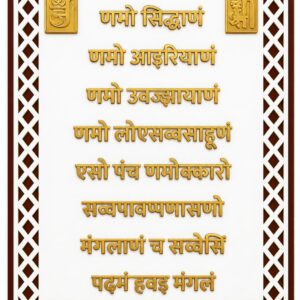 णमो सिद्धाणं
णमो आइरियाणं
णमो उवज्झायाणं
णमो लोएसव्वसाहूणं
एसो पंच णमोक्कारो
सव्वपावप्पणासणो
मंगलाणं च सव्वेसिं
पढ्मं हवइ मंगलं